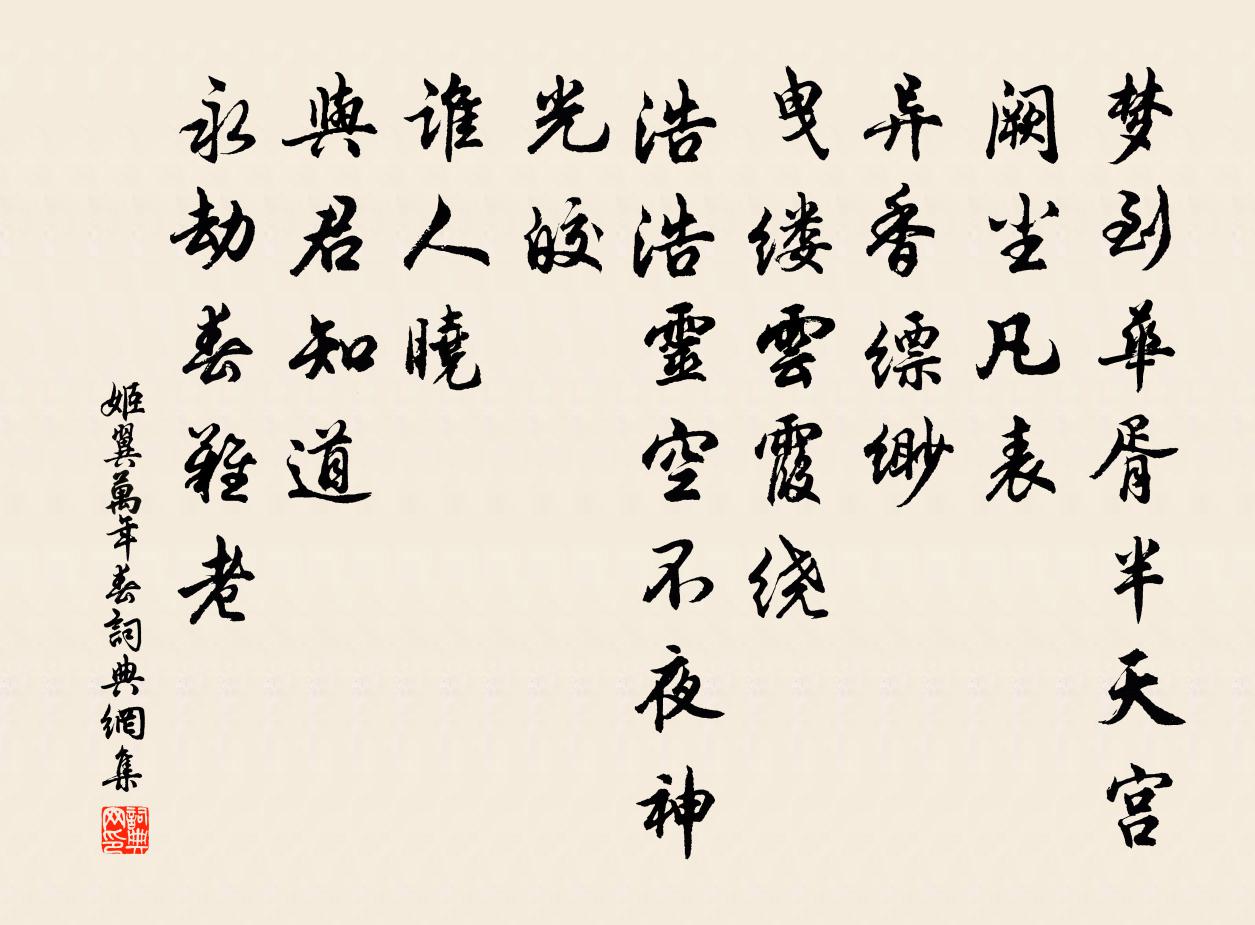 梦到華胥半天宫
阙尘凡表
异香缥缈
曳缕雲霞绕
浩浩靈空不夜神
光皎
谁人曉
與君知道
永劫春難老
姬翼萬年春詞典網集
詞典网印